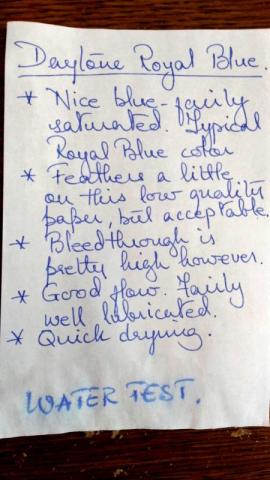 Daytone Royal Blue.
* Nice blue - fairly
saturated. Typical
Royal Blue color
* Feathers a little
on this low quality
paper, but acceptable.
* Bleedthrough is
pretty high however.
* Good flow. Fairly
well lubricated.
* Quick drying.
WATER TEST.